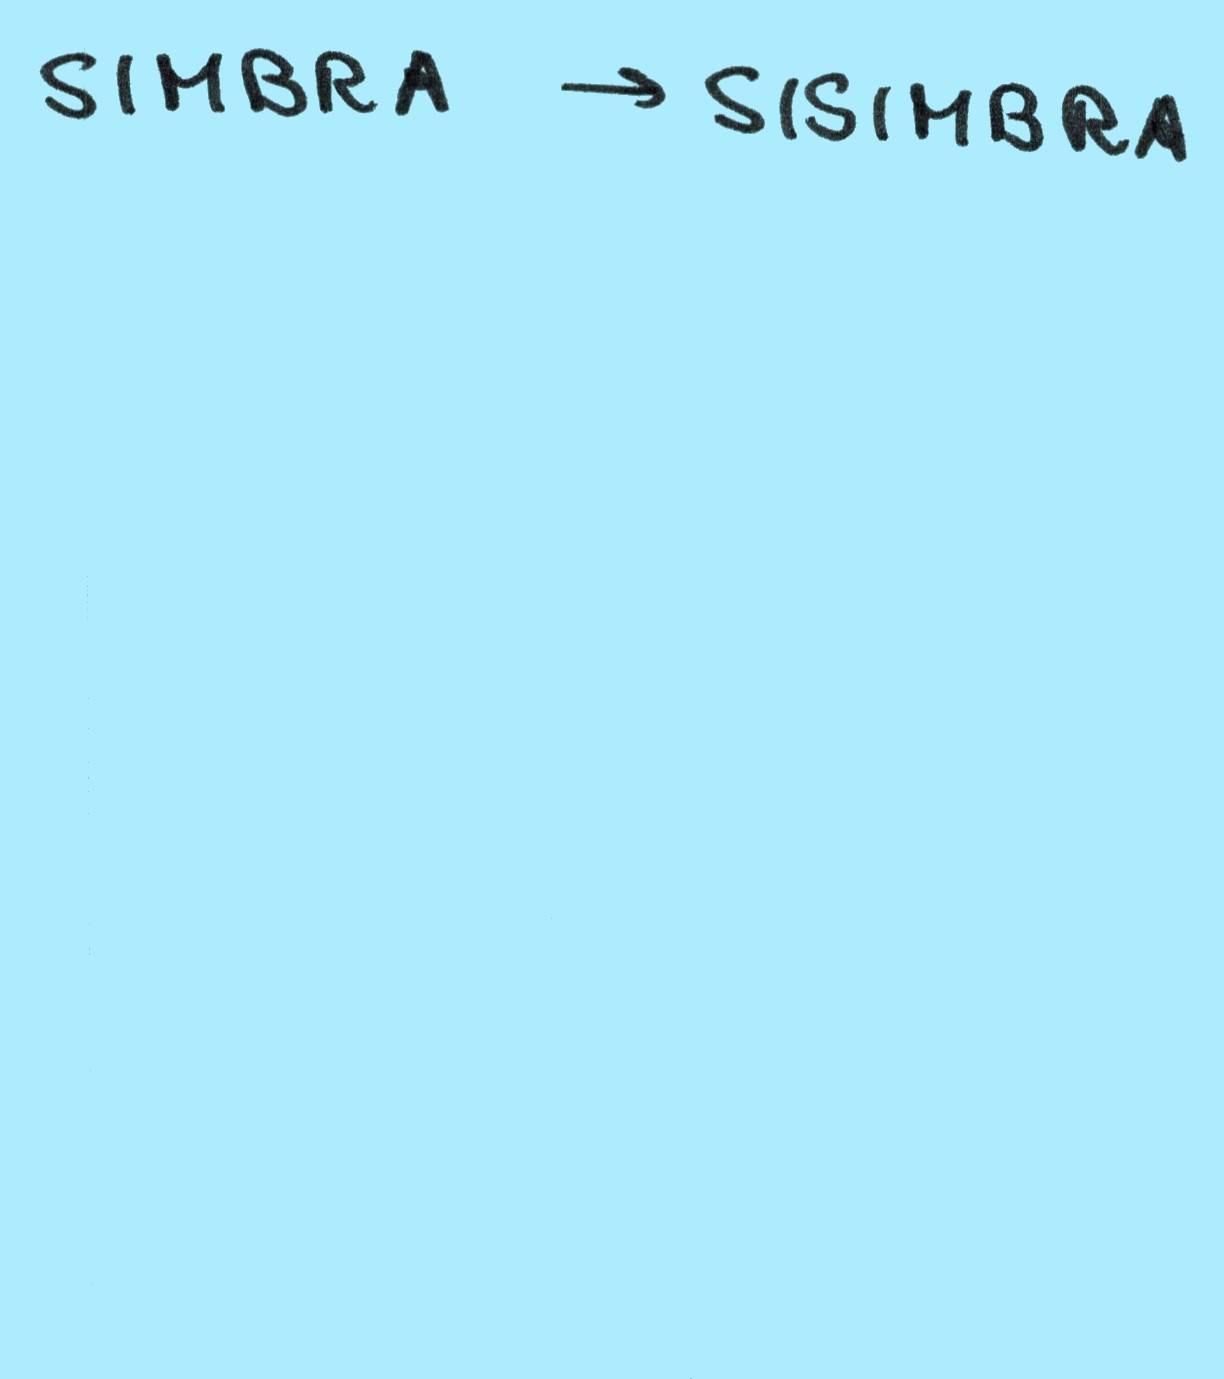 SIMBRA → SISIMBRA